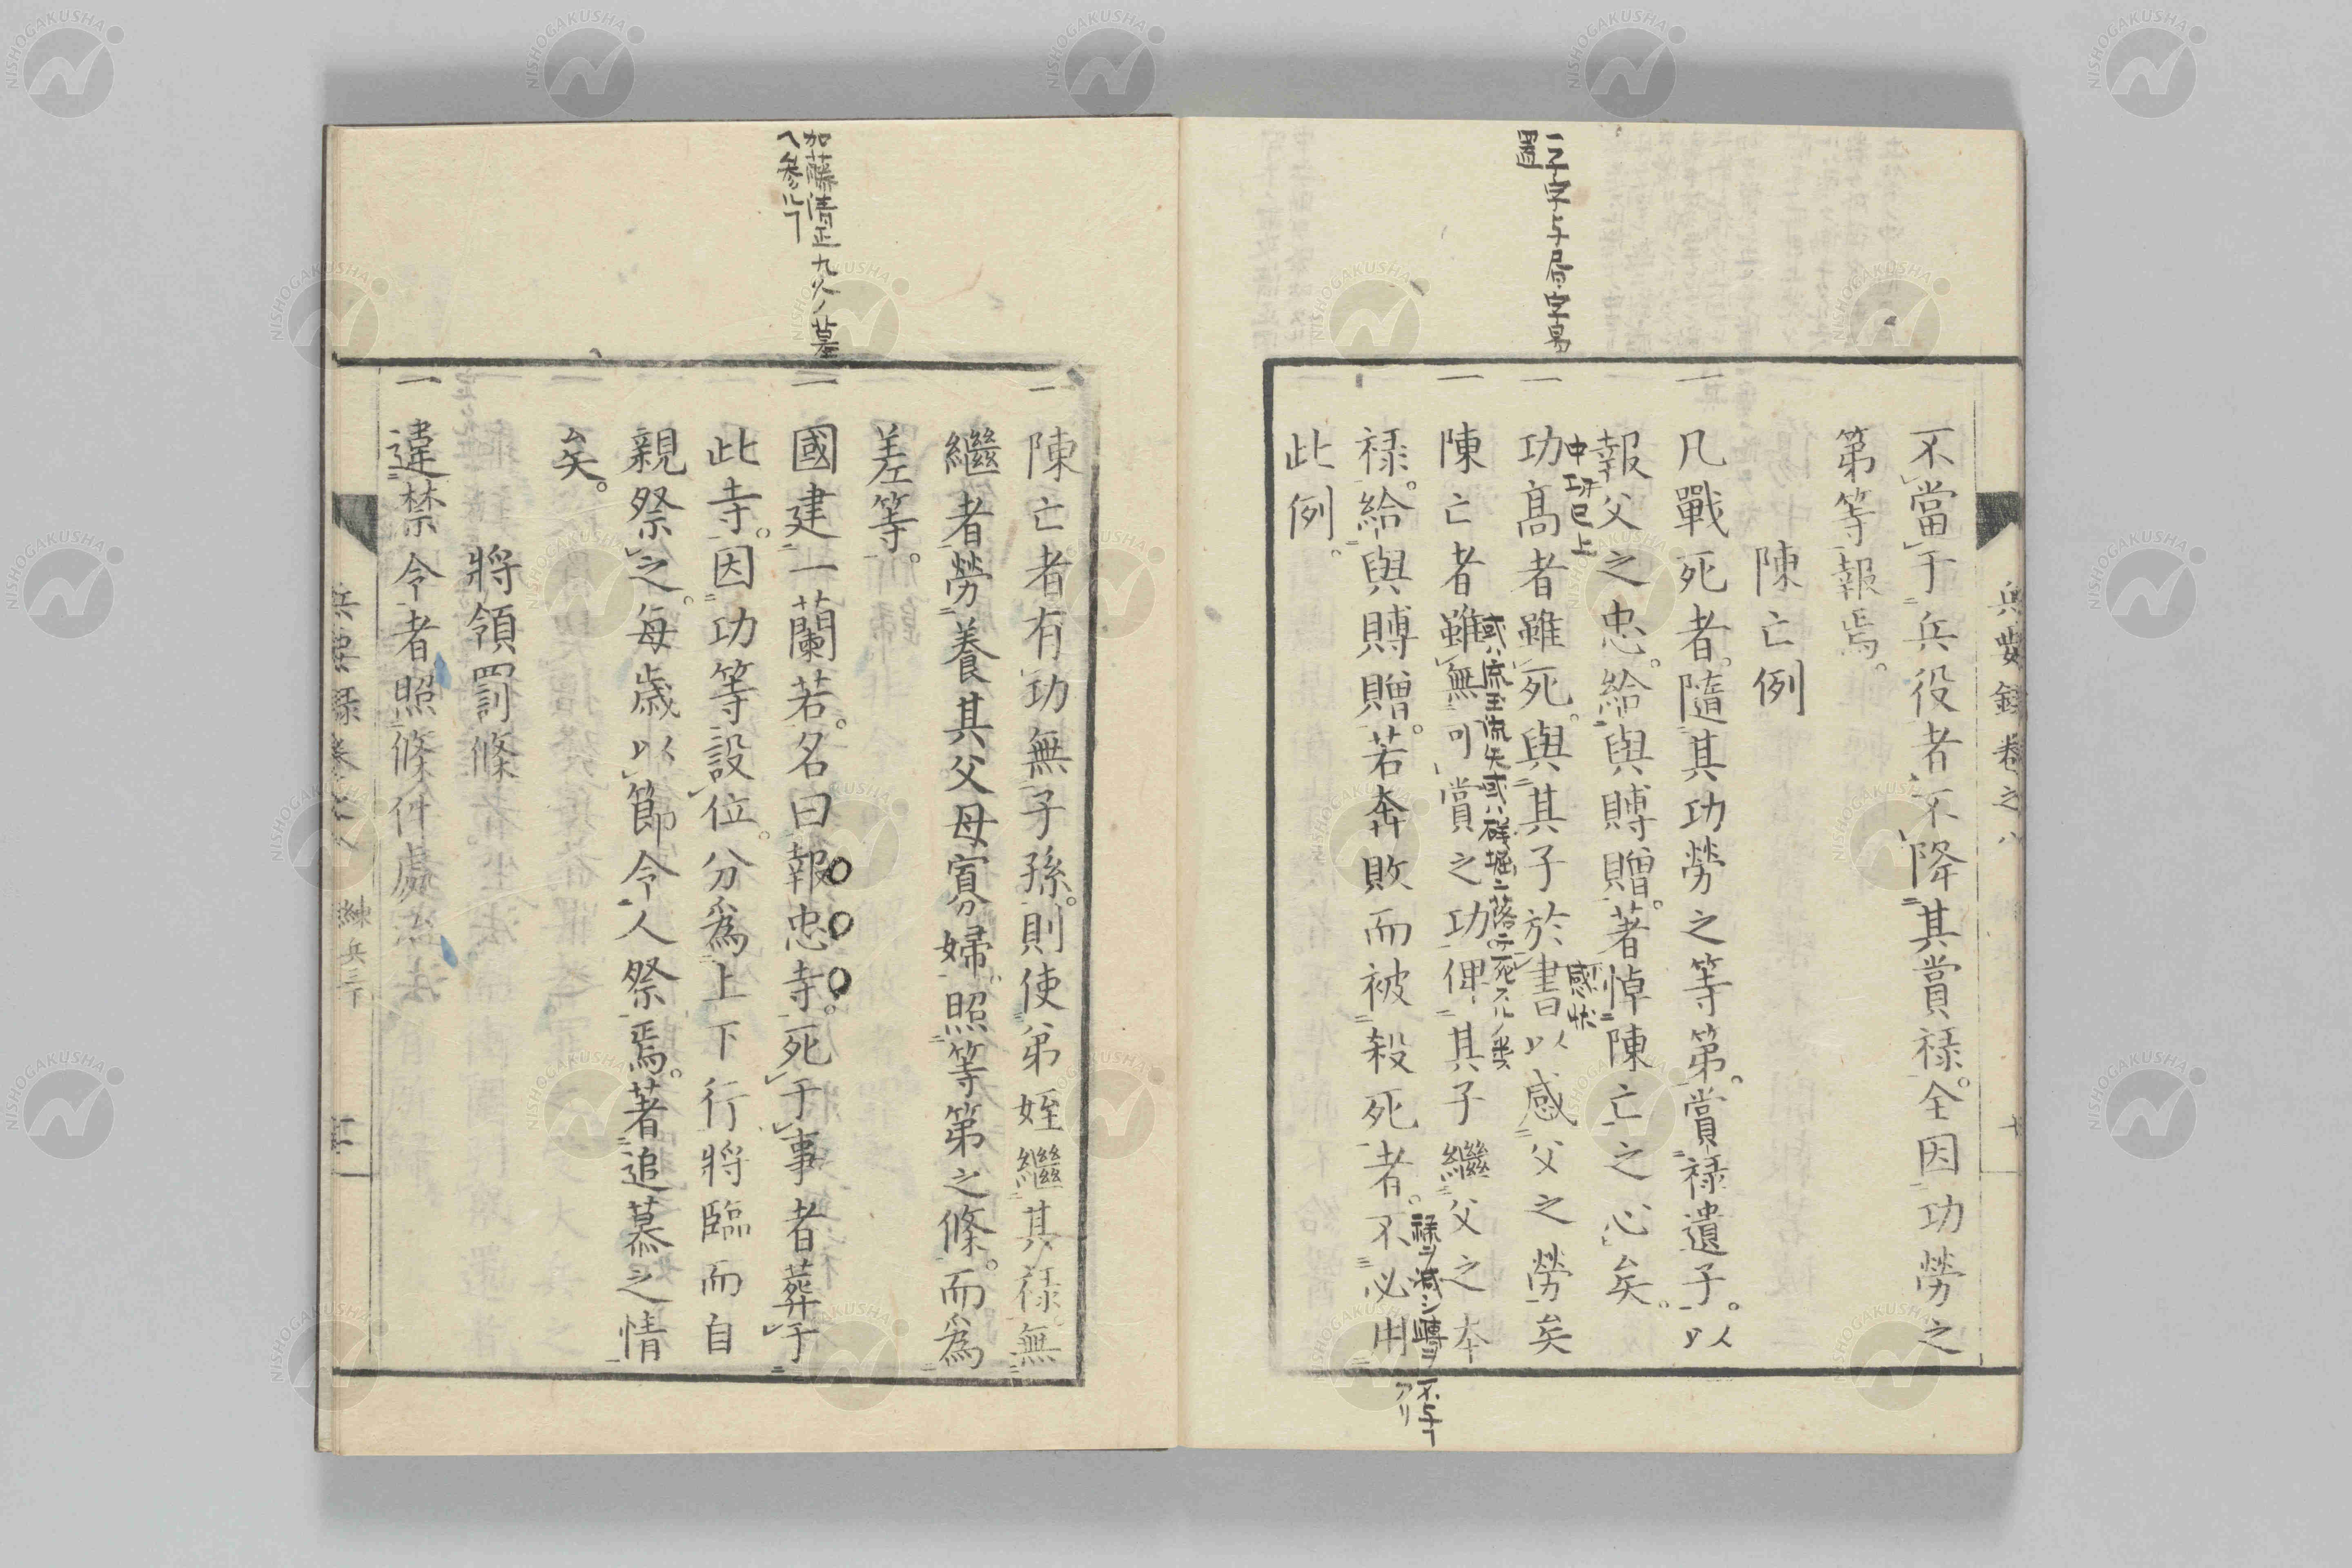 兵要録卷之八
不當于兵役者不降其賞禄。全因功勞之
第等報焉。
陳亡例
一 凡戰死者。隨其功勞之等第。賞禄遺子。以
報父之忠。給與賻贈。著悼陳亡之心矣。
中功已上
感状
一 功高者雖死。與其子於書以感父之勞矣
一 陳亡者雖無可賞之功俾其子繼父之本
禄。給與賻贈。若奔敗而被殺死者。不必用
此例。
一 陳亡者有功無子孫。則使弟姪繼其禄。無
繼者勞養其父母寡婦。照等第之條。而為
差等。
加藤清正九人ノ墓
へ参ルヿ
一 國建一蘭若。名曰報忠寺。死于事者葬于
此寺。因功等設位。分為上下行將臨而自
親祭之。每歳以節令人祭焉。著追慕之情
矣。
將領罰條
一 違禁令者照條件處
兵要録卷之八 練兵三下
NISHOGAKUSHA